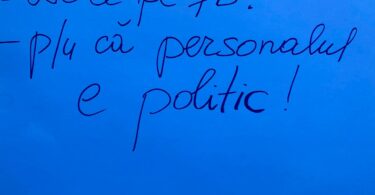 pe FB.
- p/u că personalul
e politic!